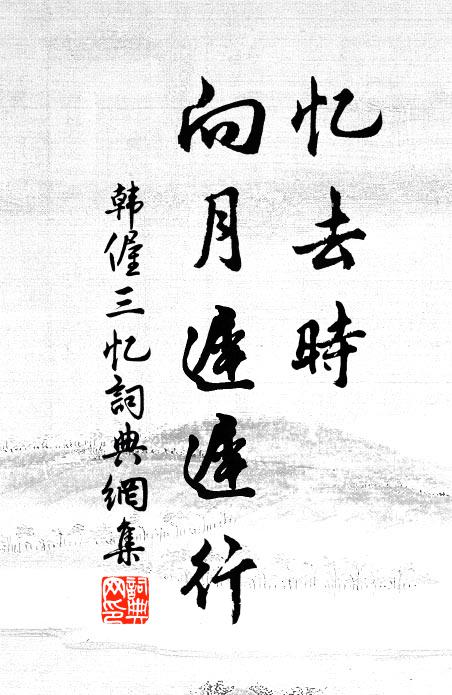 忆去時
向月遲遲行
韩偓三忆詞典網集
詞典网印